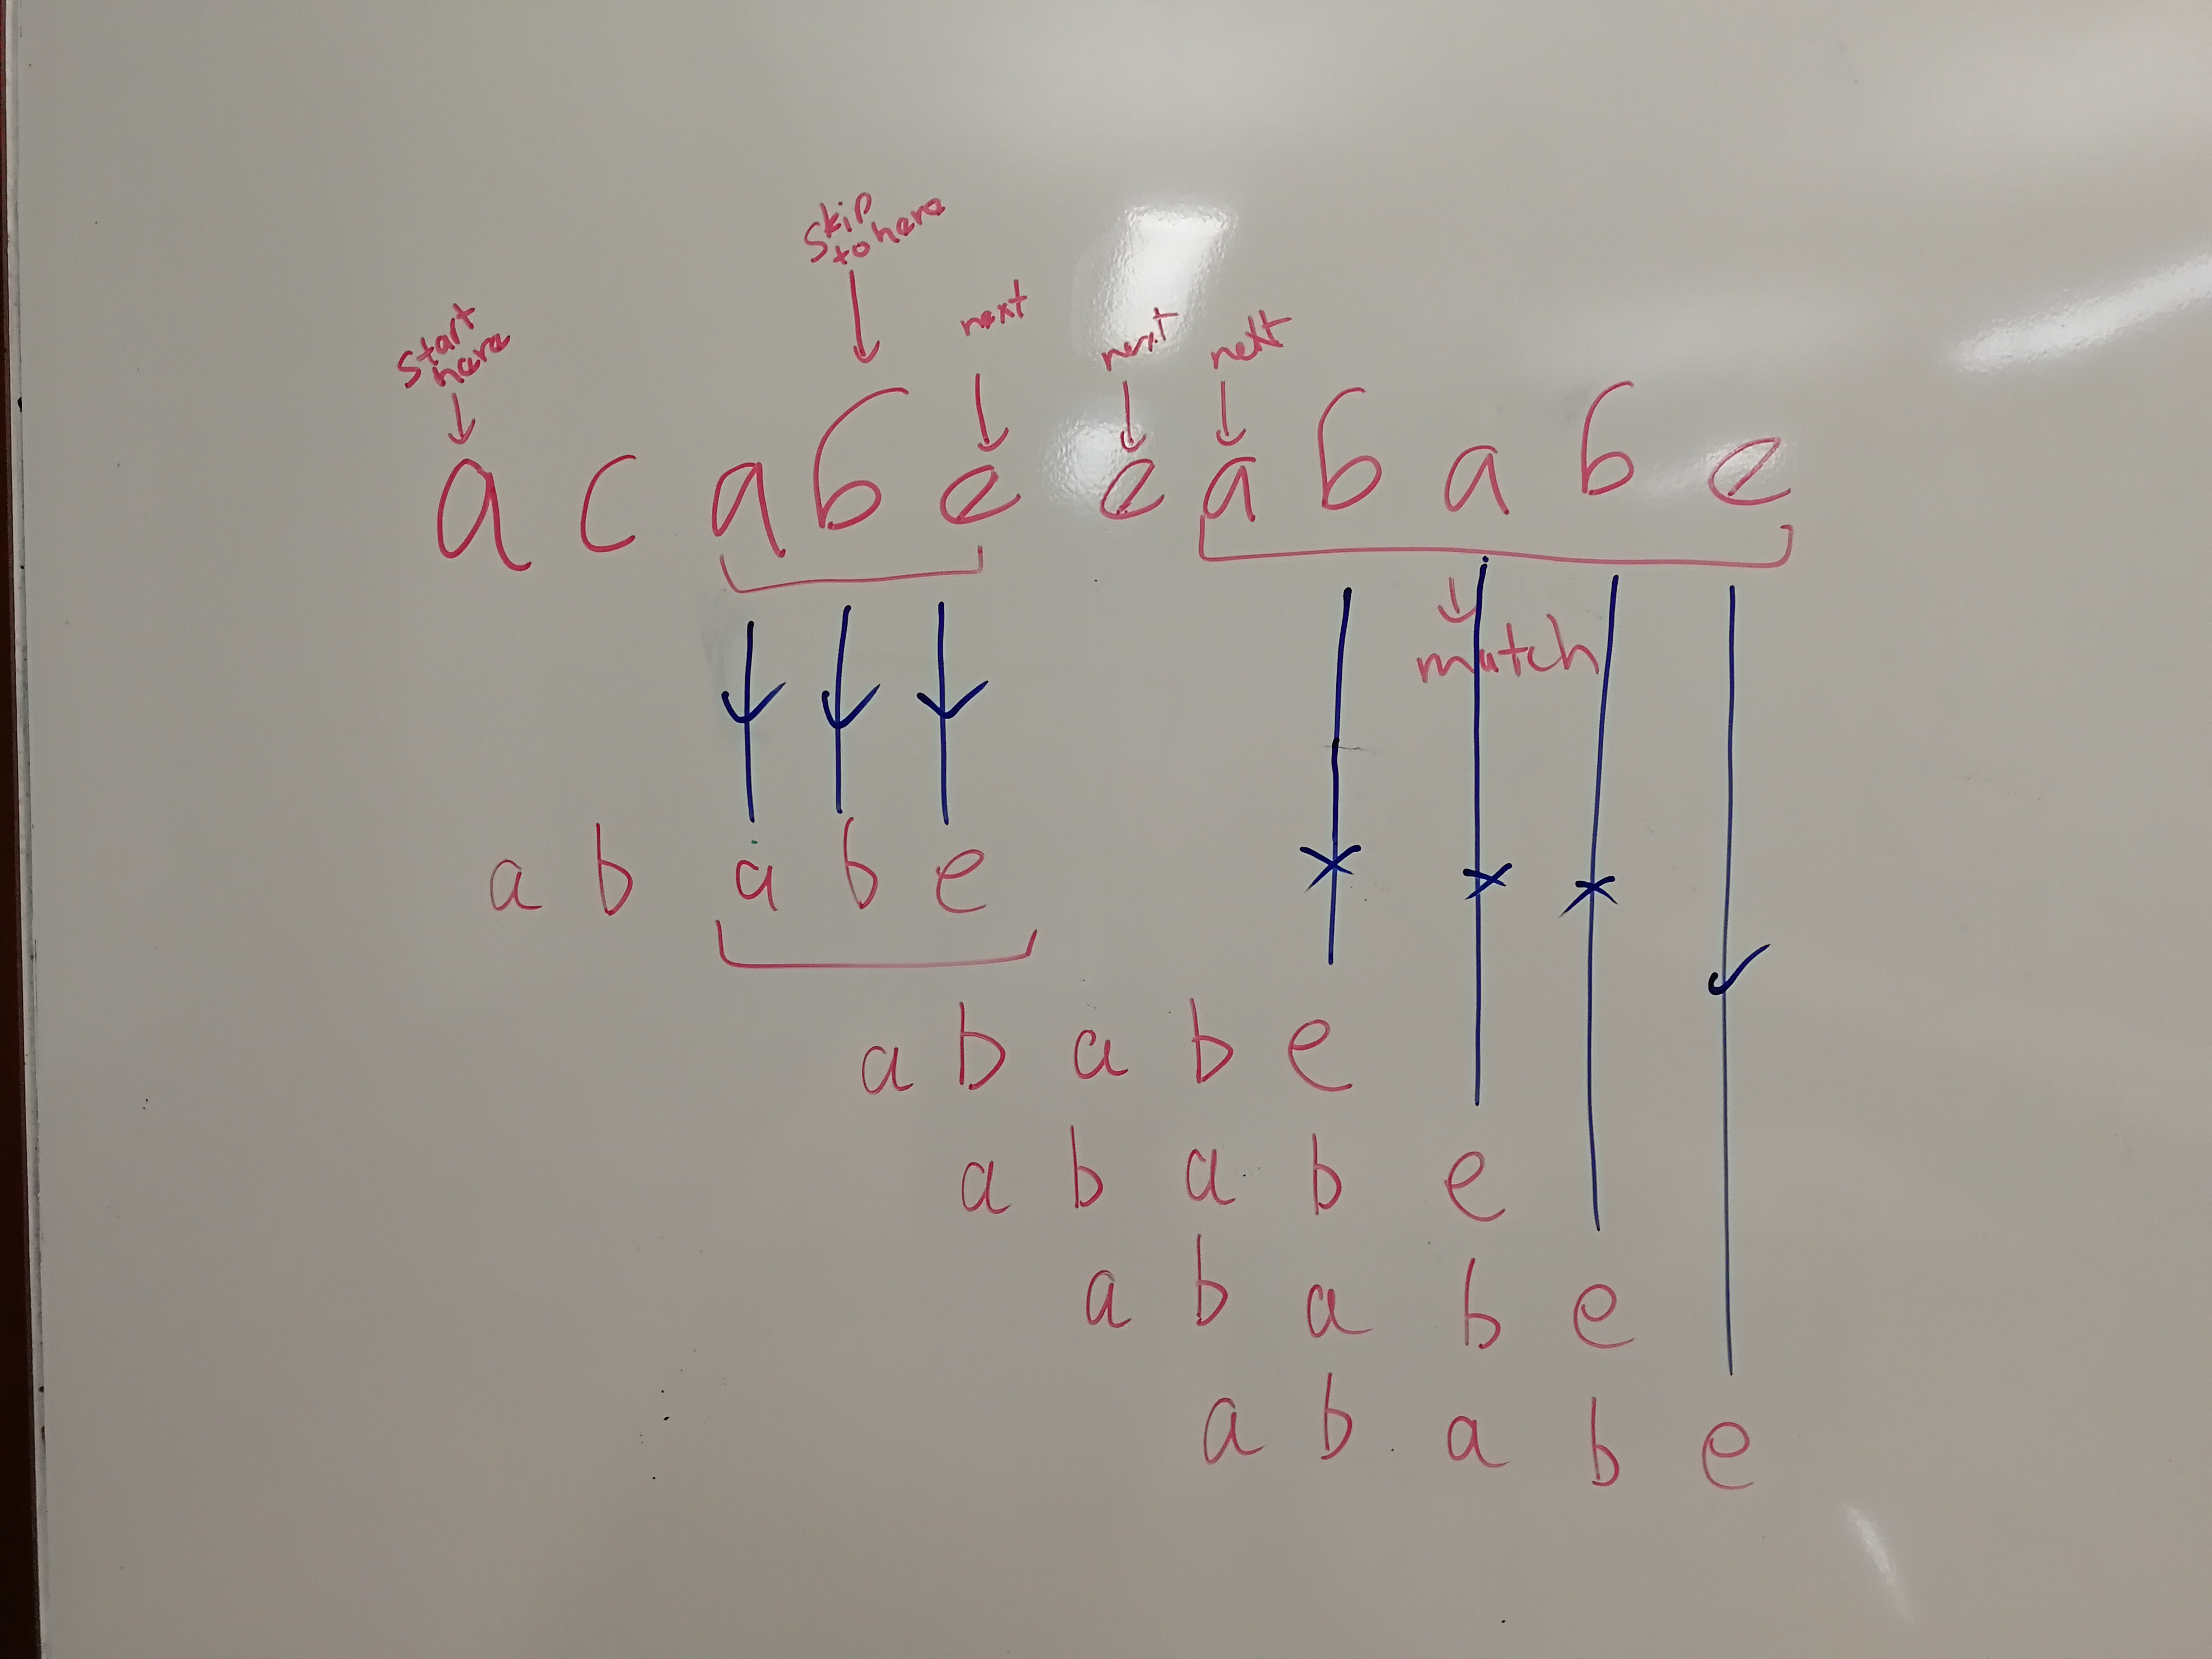 skip
to here
start
here
next
next
next
a c a b e e a b a b e
match
a b a b e
a b a b e
a b a b e
a b a b e
a b a b e